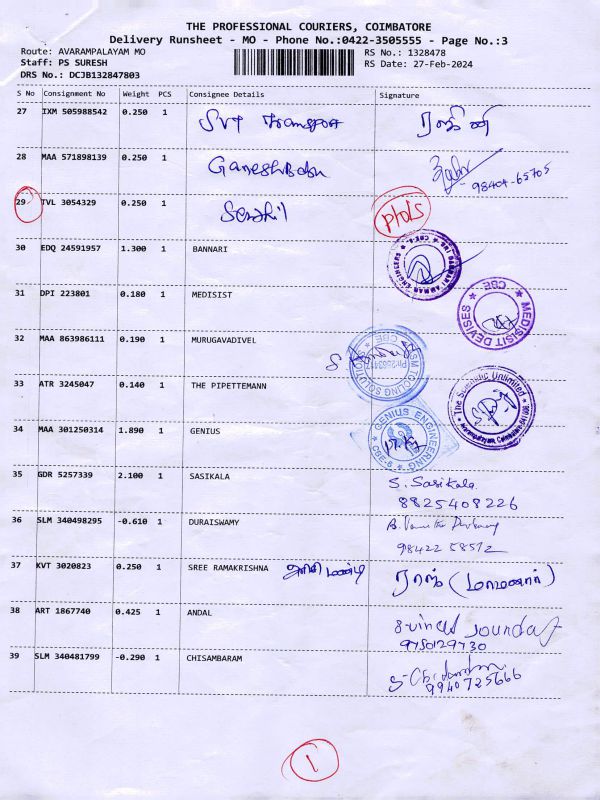 THE PROFESSIONAL COURIERS, COIMBATORE
Delivery Runsheet - MO - Phone No.:0422-3505555 - Page No.:3
Route: AVARAMPALAYAM MO
RS No.: 1328478
Staff: PS SURESH
RS Date: 27-Feb-2024
DRS No.: DCJB132847803
S No Consignment No Weight PCS Consignee Details Signature
27 IXM 505988542 0.250 1 SVT Transport
28 MAA 571898139 0.250 1 GaneshBabu
98404-65705
29 TVL 3054329 0.250 1 Senthil
30 EDQ 24591957 1.300 1 BANNARI
SRI BANNARI AMMAN ENGINEERS CBE-6
31 DPI 223801 0.180 1 MEDISIST
MEDISIST DEVISES
CBE
32 MAA 863986111 0.190 1 MURUGAVADIVEL
TOOLING SOLUTIONS
CBE
33 ATR 3245047 0.140 1 THE PIPETTEMANN
The Scientific Unlimited
Avarampalayam, Coimbatore-641 006
34 MAA 301250314 1.890 1 GENIUS
GENIUS ENGINEERING
CBE-6
35 GDR 5257339 2.100 1 SASIKALA S. Sasikala
8825408226
36 SLM 340498295 -0.610 1 DURAISWAMY
98422 58512
37 KVT 3020823 0.250 1 SREE RAMAKRISHNA
38 ART 1867740 0.425 1 ANDAL
9750129730
39 SLM 340481799 -0.290 1 CHISAMBARAM
9940725666
1